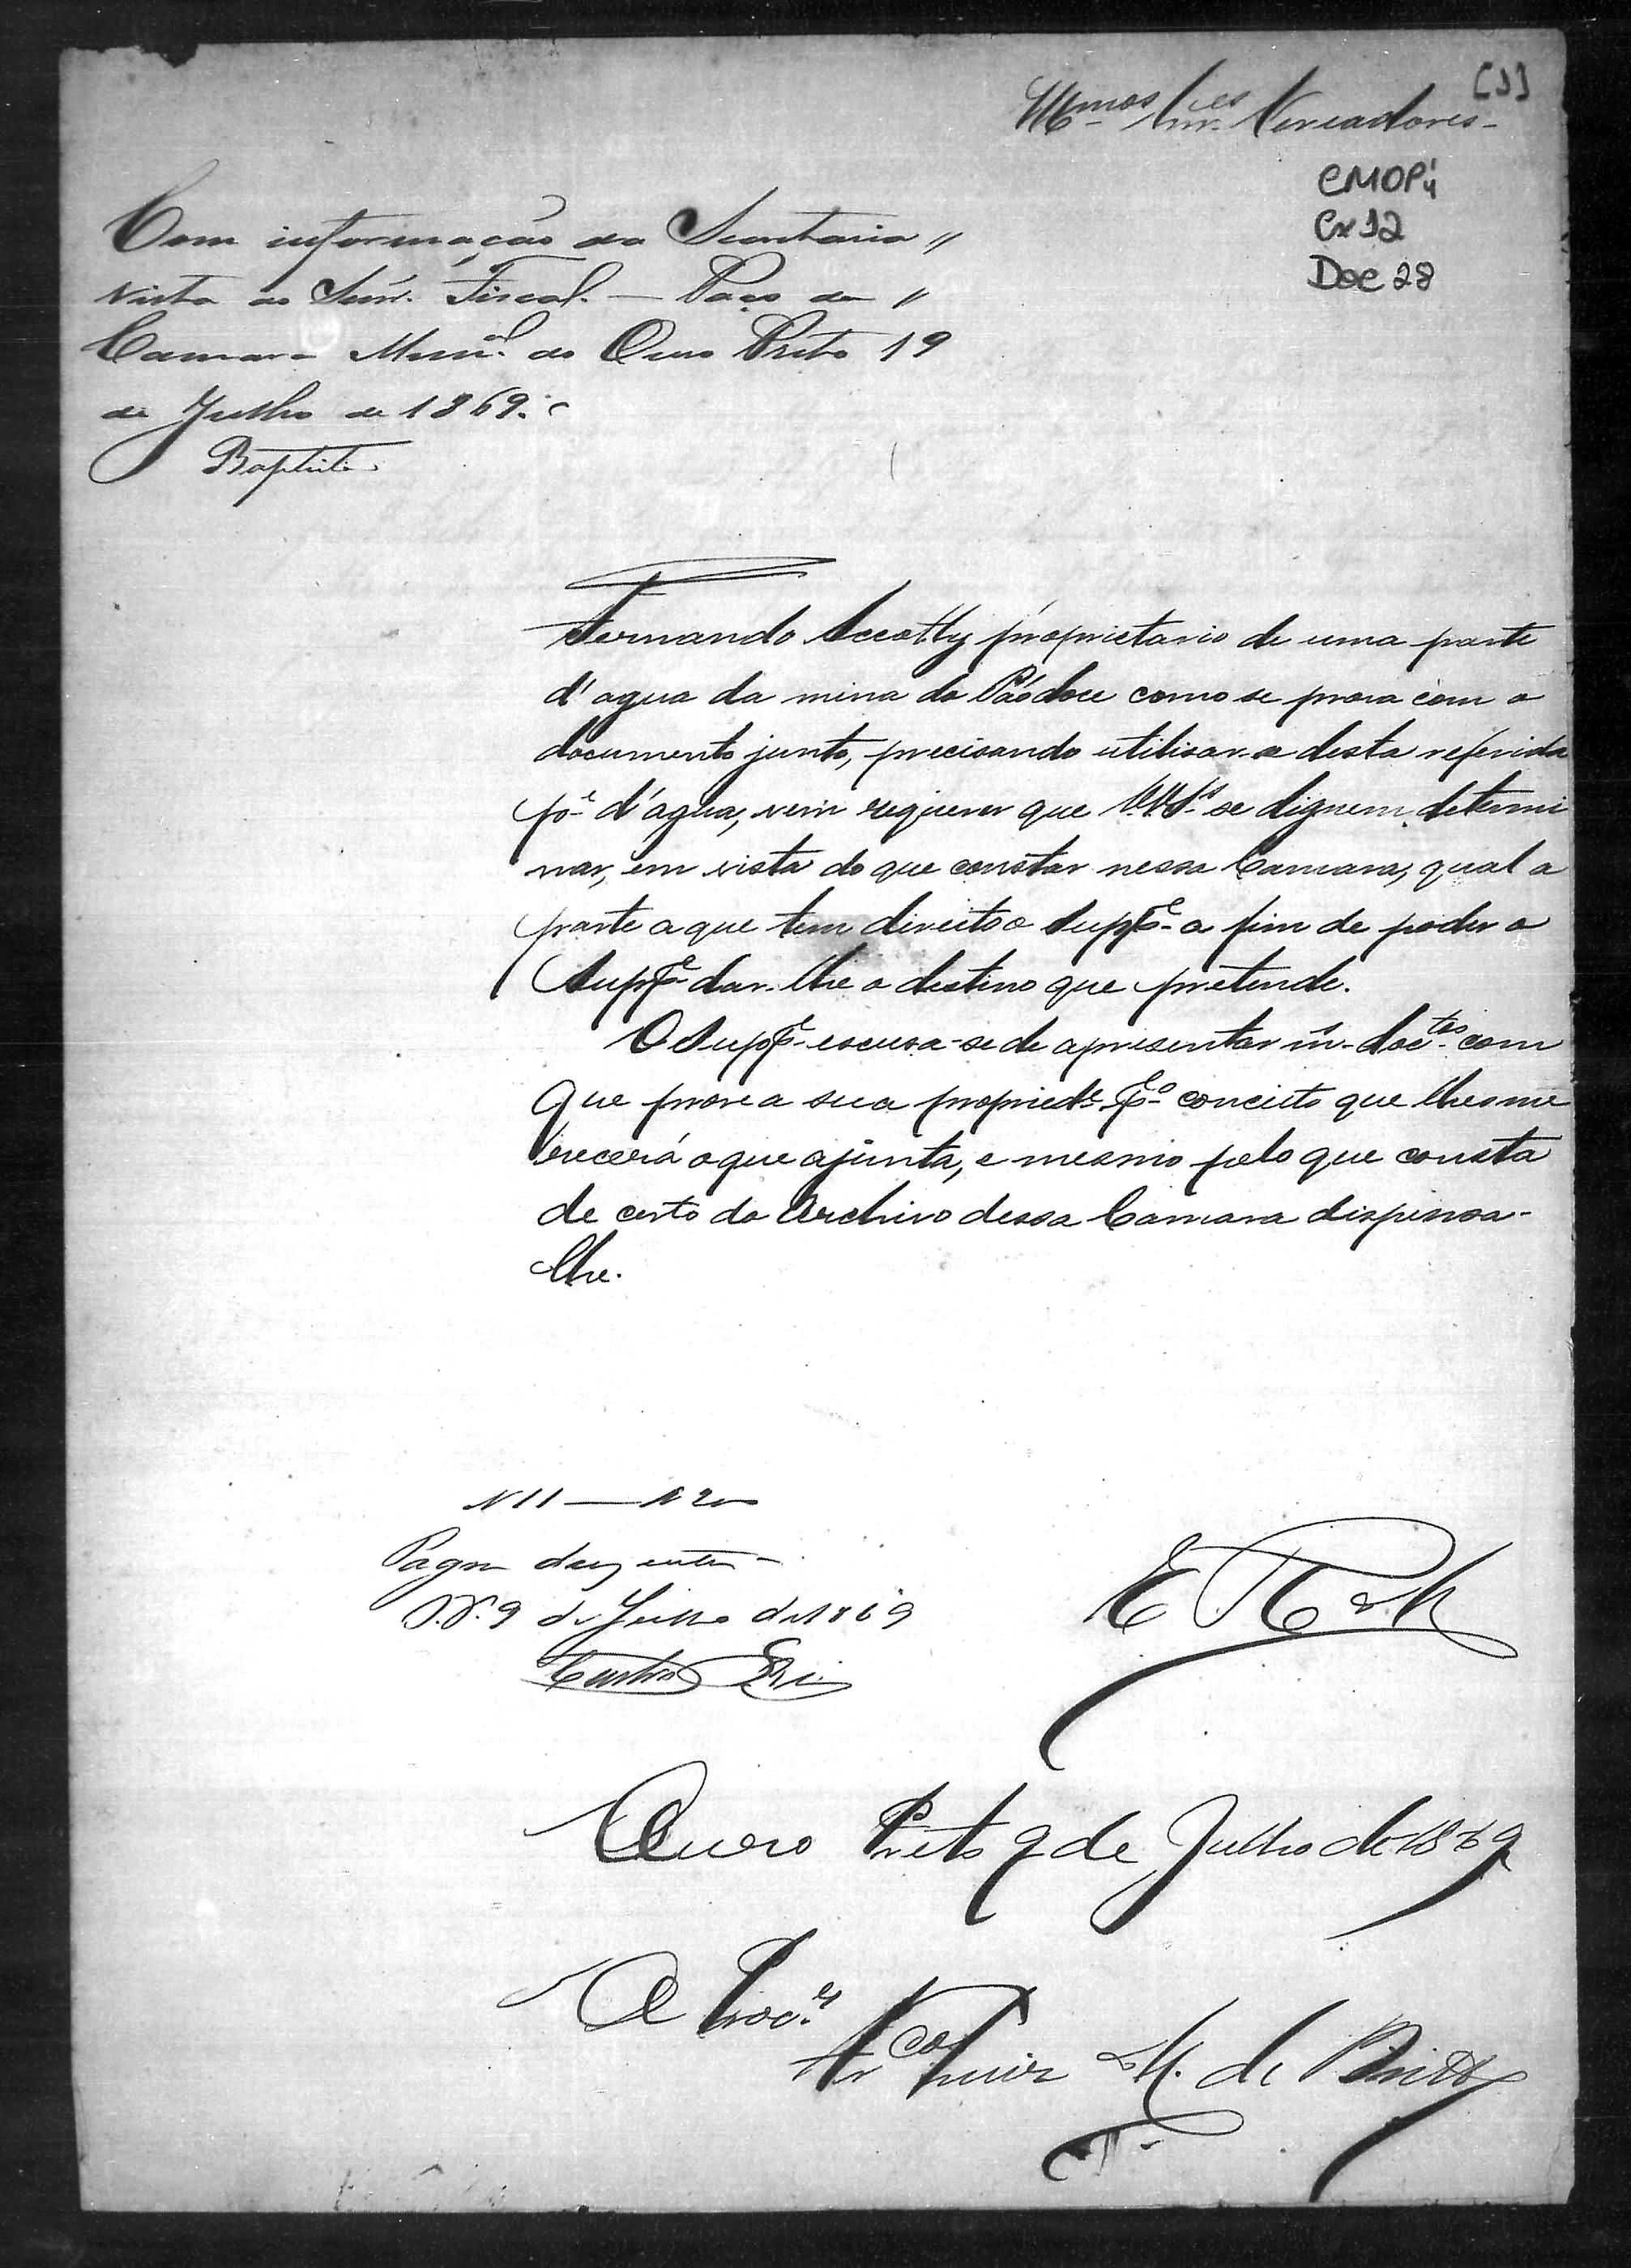 [1]
Illmos Snres Vereadores
CMOP;4
Cx 12
Doc 28
Com informação da Secretaria //
vista ao Snr. Fiscal. — Paço da //
Camara Munal do Ouro Preto 19
de Julho de 1869.
Baptista
Fernando Sccotty proprietario de uma parte
d'agua da mina do Pãodoce como se prova com o
documento junto, precisando utilisar-se desta referida
pe d'agua, vem requerer que V.V.Sas se dignem determi
nar, em vista do que constar nessa Camara, qual a
parte a que tem direito o Suppte a fim de poder o
Suppte dar-lhe o destino que pretende.
O Suppte escusa-se de apresentar os doctos com
que prova a sua propriede pelo conceito que lhes me
recerá o que ajunta, e mesmo pelo que consta
de certo do Archivo dessa Camara dispensa-
lhe.
N 11 — 200
Pagou duzentos
O.P. 9 de Julho de 1869
Castro
E R M
Ouro Preto 9 de Julho de 1869
O Procor
Frco Luiz M. de Britto